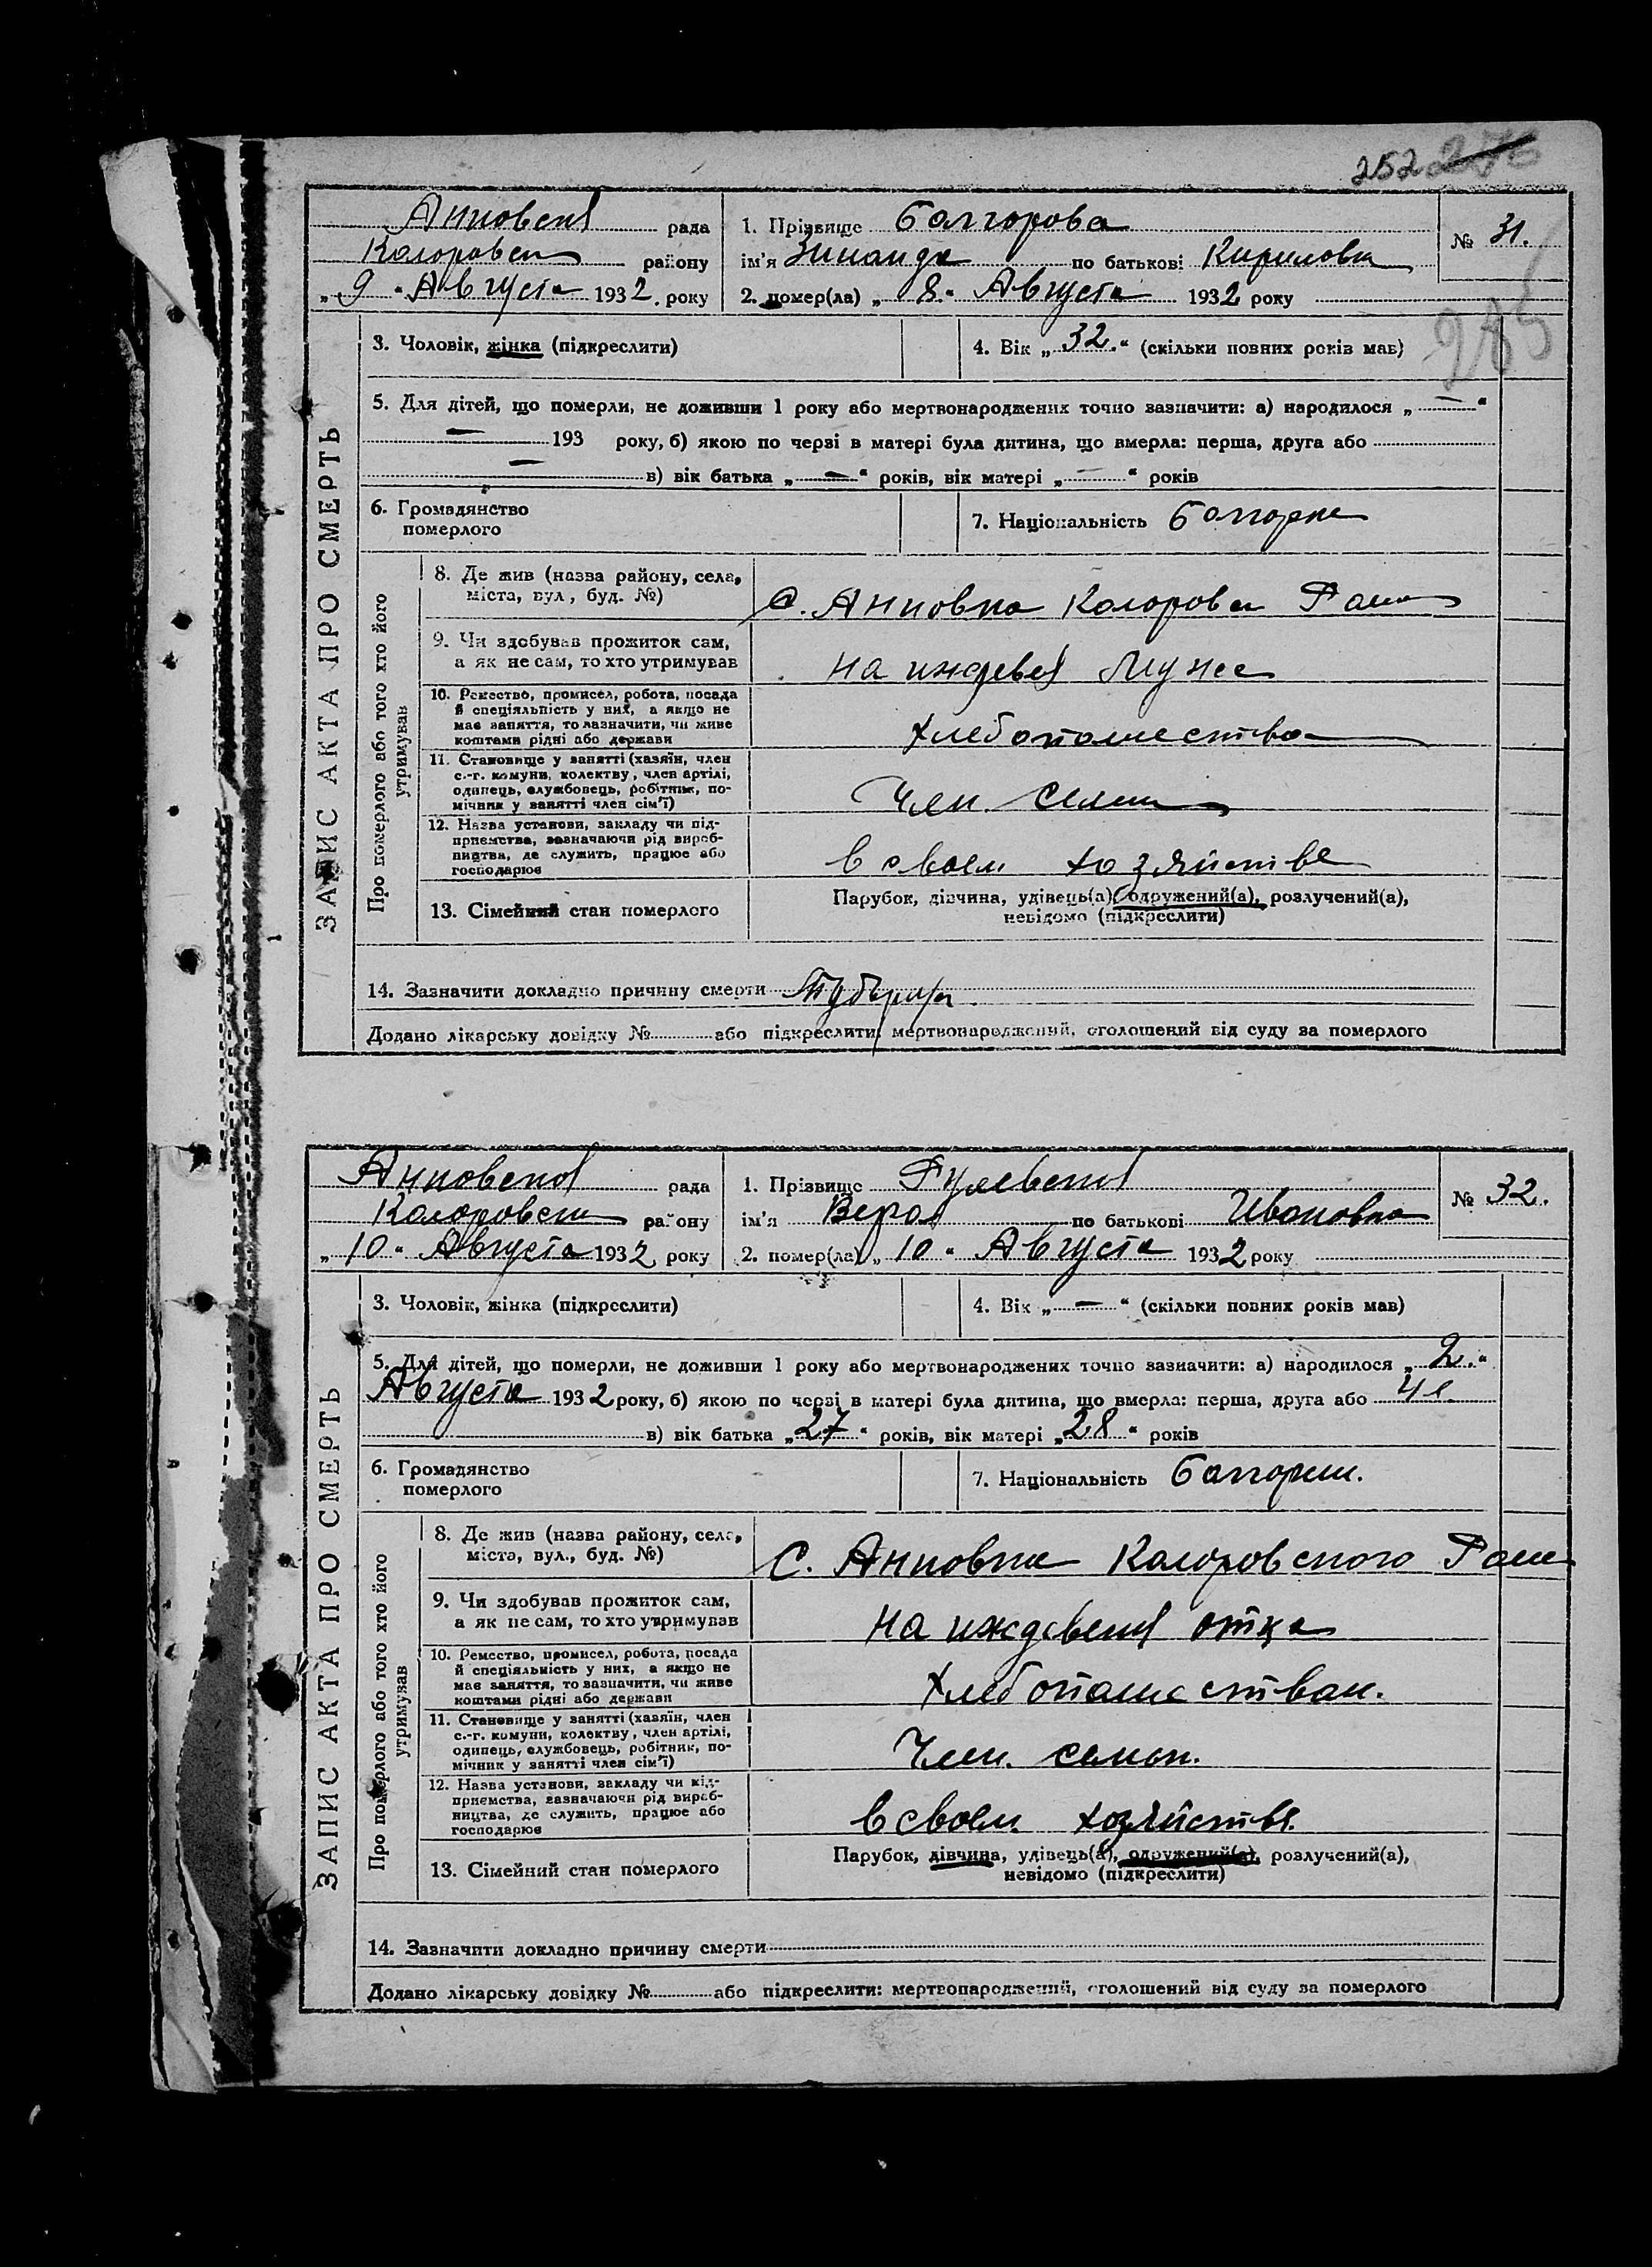 252 276
Анновской рада
Коларовск району
„ 9 “ Августа 1932 року
1. Прізвище Балгорова
ім’я Зинаида по батькові Кириловна
2. помер(ла) „ 8 “ Августа 1932 року
№ 31.
ЗАПИС АКТА ПРО СМЕРТЬ
3. Чоловік, жінка (підкреслити)
4. Вік „ 32. “ (скільки повних років мав)
5. Для дітей, що померли, не доживши 1 року або мертвонароджених точно зазначити: а) народилося „ — “
— 193 року, б) якою по черзі в матері була дитина, що вмерла: перша, друга або
— в) вік батька „ — “ років, вік матері „ — “ років
6. Громадянство
померлого
7. Національність Болгарка
Про померлого або того хто його
утримував
8. Де жив (назва району, села,
міста, вул., буд. №)
С. Анновка Коларовск Район
9. Чи здобував прожиток сам,
а як не сам, то хто утримував
На иждевен Мужа
10. Ремество, промисел, робота, посада
й спеціяльність у них, а якщо не
має заняття, то зазначити, чи живе
коштами рідні або держави
Хлебопашество
11. Становище у занятті (хазяїн, член
с.-г. комуни, колективу, член артілі,
одинець, службовець, робітник, по-
мічник у занятті член сім’ї)
Член. семи
12. Назва установи, закладу чи під-
приємства, зазначаючи рід вироб-
ництва, де служить, працює або
господарює
в своем хозяйстве
13. Сімейний стан померлого
Парубок, дівчина, удівець(а), одружений(а), розлучений(а),
невідомо (підкреслити)
14. Зазначити докладно причину смерти
Додано лікарську довідку № або підкреслити: мертвонароджений, оголошений від суду за померлого
Анновской рада
Коларовск району
„ 10 “ Августа 1932 року
1. Прізвище Гулевской
ім’я Вера по батькові Ивановна
2. помер(ла) „ 10 “ Августа 1932 року
№ 32.
ЗАПИС АКТА ПРО СМЕРТЬ
3. Чоловік, жінка (підкреслити)
4. Вік „ — “ (скільки повних років мав)
5. Для дітей, що померли, не доживши 1 року або мертвонароджених точно зазначити: а) народилося „ 2. “
Августа 1932 року, б) якою по черзі в матері була дитина, що вмерла: перша, друга або 4 е
в) вік батька „ 27 “ років, вік матері „ 28 “ років
6. Громадянство
померлого
7. Національність Болгарк.
Про померлого або того хто його
утримував
8. Де жив (назва району, села,
міста, вул., буд. №)
С. Анновка Коларовского Райо
9. Чи здобував прожиток сам,
а як не сам, то хто утримував
На иждевени отца
10. Ремество, промисел, робота, посада
й спеціяльність у них, а якщо не
має заняття, то зазначити, чи живе
коштами рідні або держави
Хлебопашествам.
11. Становище у занятті (хазяїн, член
с.-г. комуни, колективу, член артілі,
одинець, службовець, робітник, по-
мічник у занятті член сім’ї)
Член. семьи.
12. Назва установи, закладу чи під-
приємства, зазначаючи рід вироб-
ництва, де служить, працює або
господарює
в своем хозяйстве.
13. Сімейний стан померлого
Парубок, дівчина, удівець(а), одружений(а), розлучений(а),
невідомо (підкреслити)
14. Зазначити докладно причину смерти
Додано лікарську довідку № або підкреслити: мертвонароджений, оголошений від суду за померлого